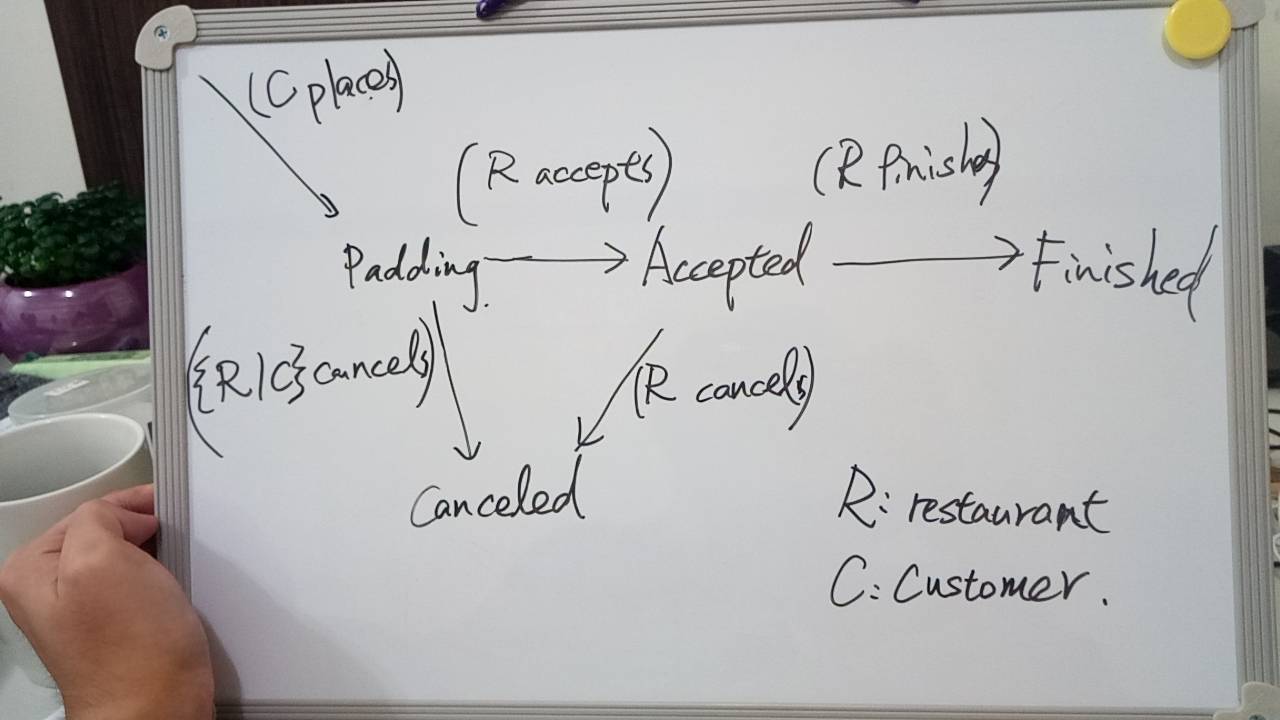 (C places)
(R accepts)
(R finishes)
Padding.
Accepted
Finished
({R|C} cancels)
(R cancels)
Canceled
R: restaurant
C: Customer.